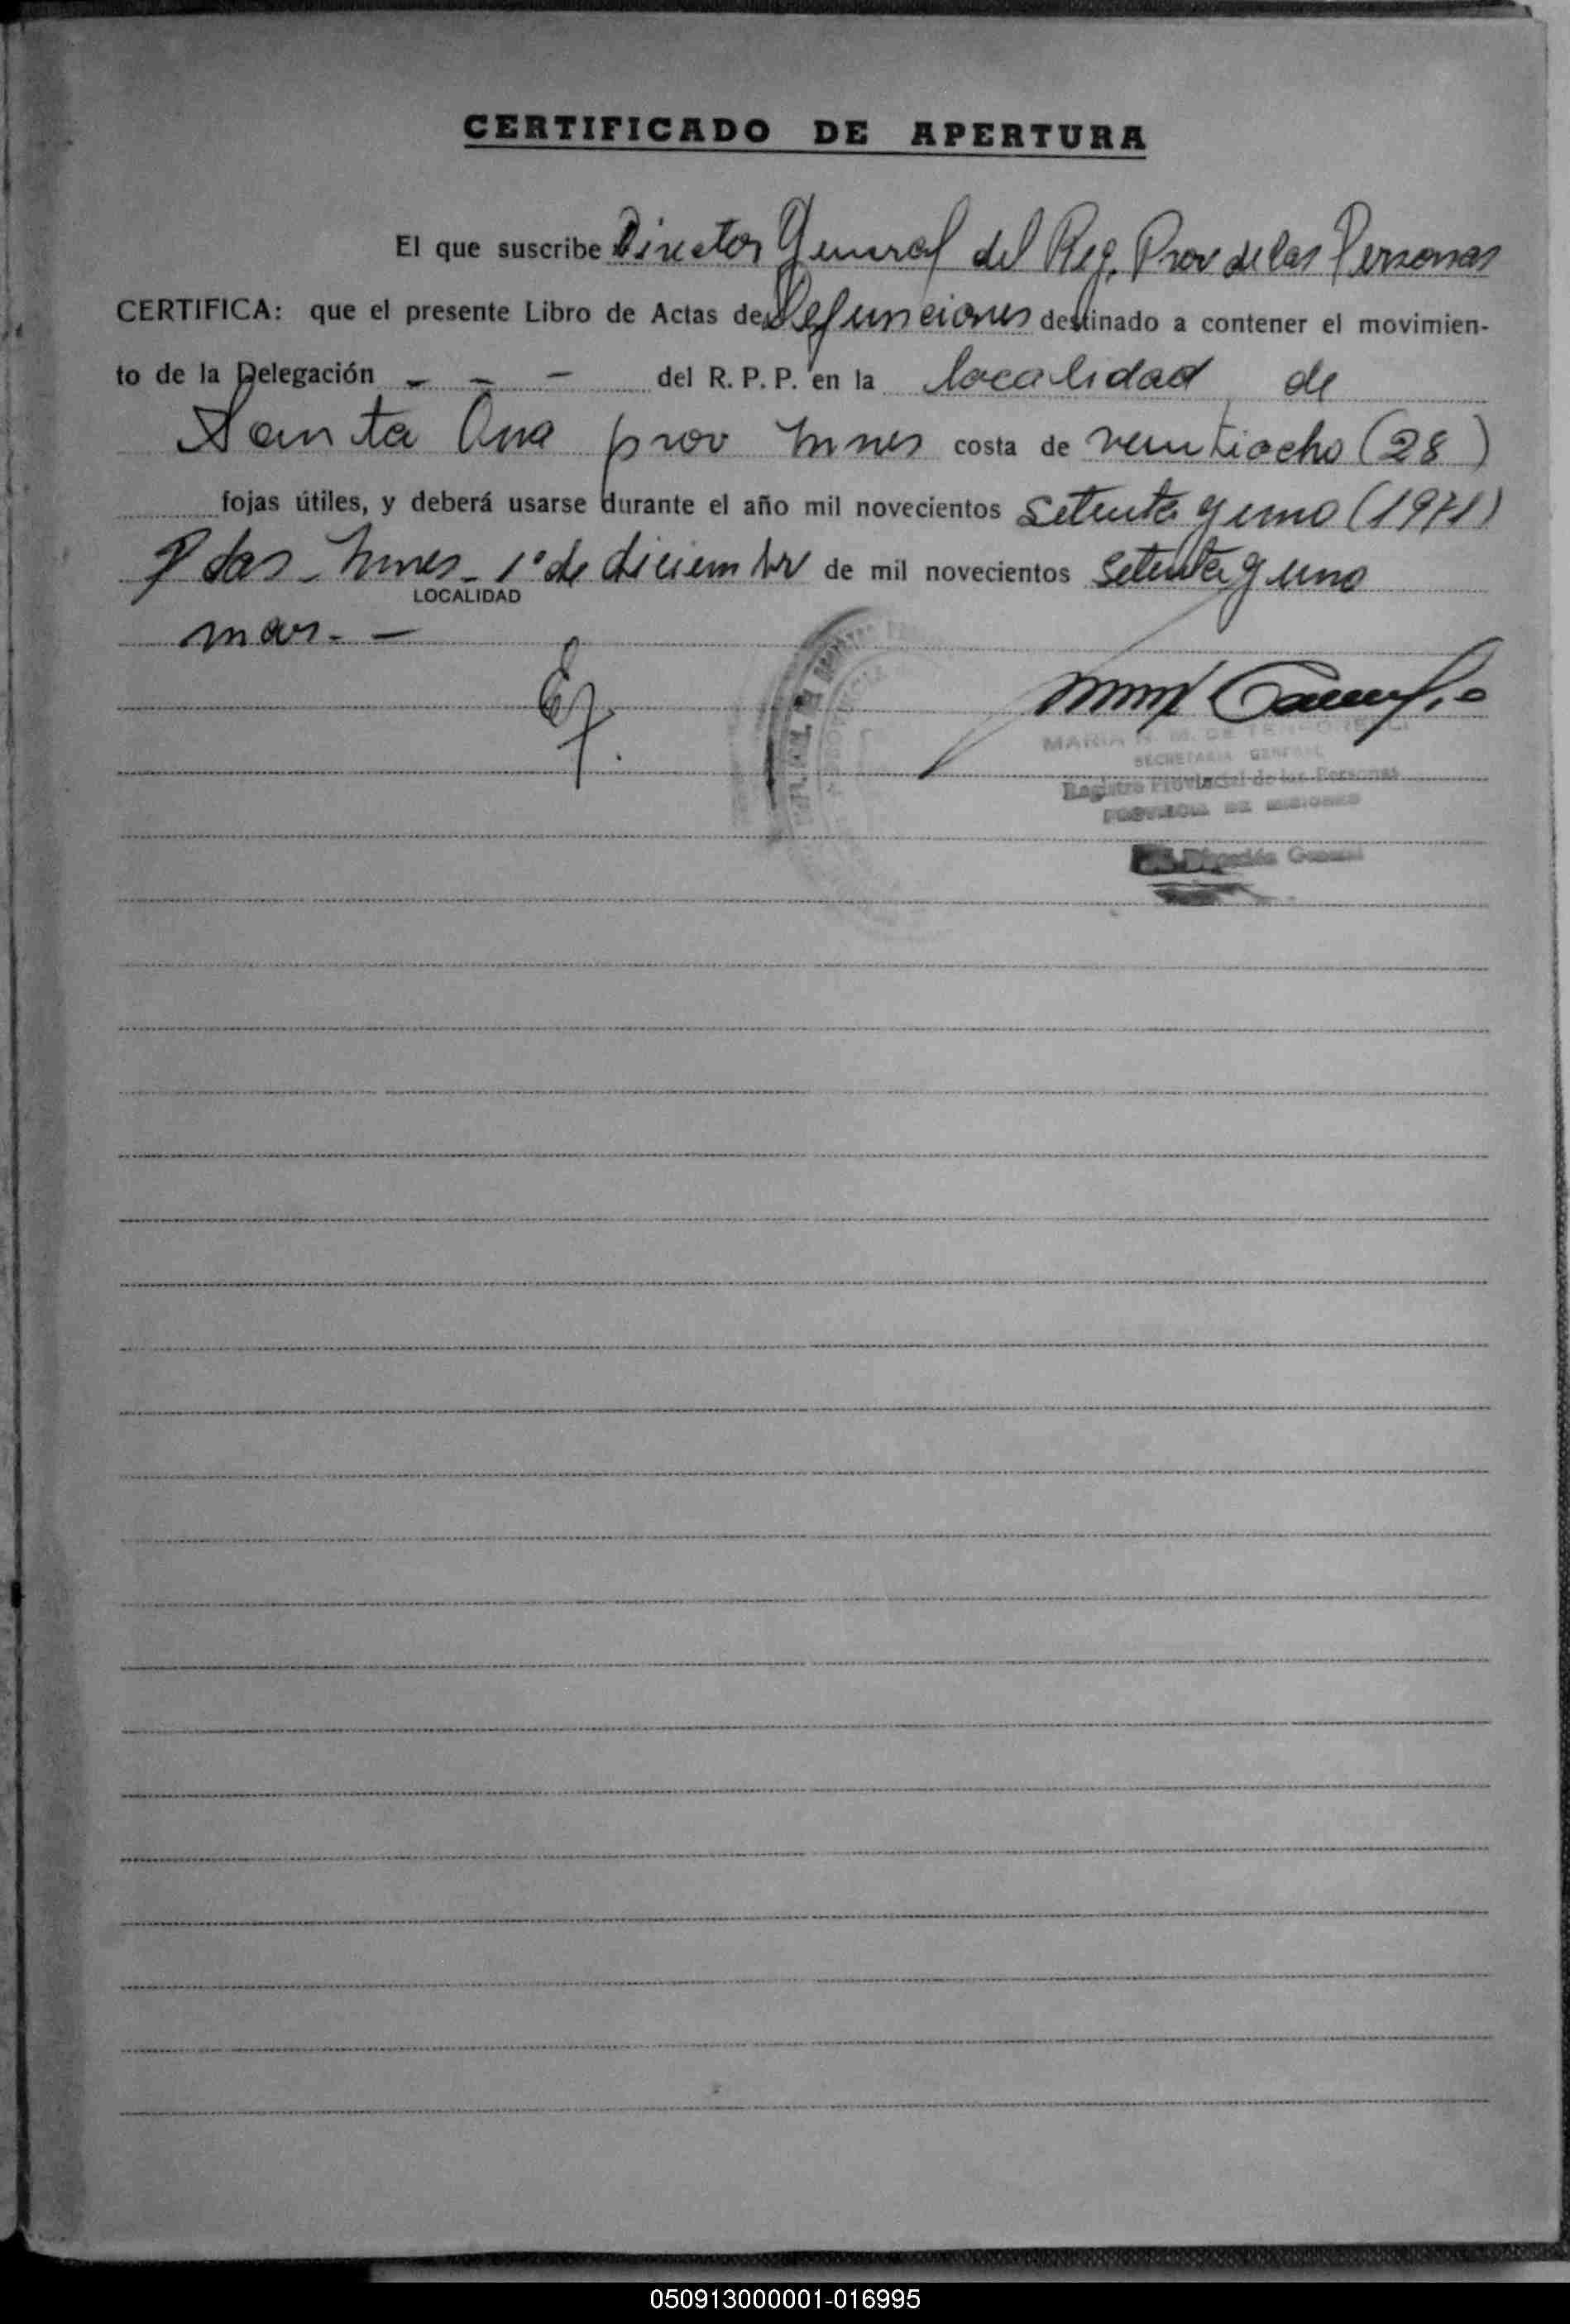 CERTIFICADO DE APERTURA
El que suscribe Director General del Reg. Prov de las Personas
CERTIFICA: que el presente Libro de Actas de Defunciones destinado a contener el movimien-
to de la Delegación - - - del R. P. P. en la localidad de
Santa Ana prov Mnes costa de veintiocho (28)
fojas útiles, y deberá usarse durante el año mil novecientos setenta y uno (1971)
Pdas - Mnes - 1º de diciembre de mil novecientos setenta y uno
LOCALIDAD
MARIA N. M. DE
SECRETARIA GENERAL
Registro Provincial de las Personas
PROVINCIA DE MISIONES
Dirección General
050913000001-016995